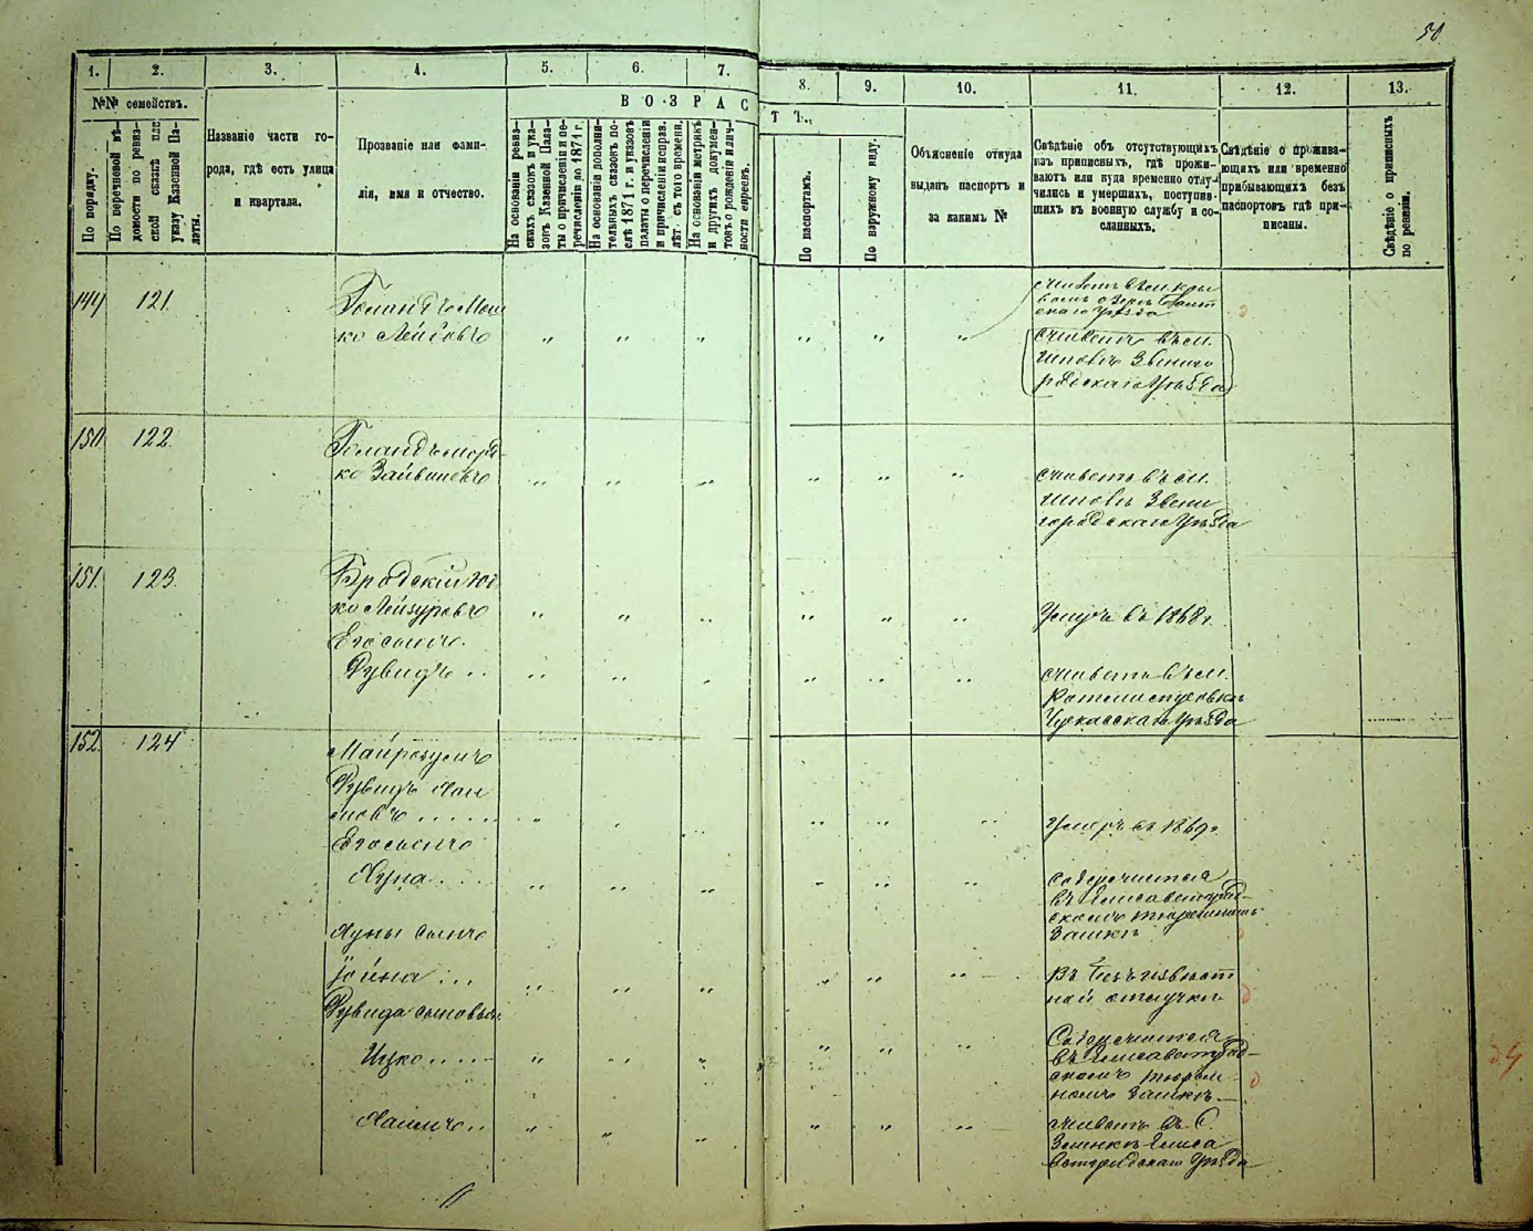 50
1. 2. 3. 4. 5. 6. 7. 8. 9. 10. 11. 12. 13.
№№ семействъ.
В О З Р А С Т Ъ.
По порядку.
По перечневой вѣ-
домости по ревиз-
ской сказкѣ или
указу Казенной Па-
латы.
Названіе части го-
рода, гдѣ есть улица
и квартала.
Прозваніе или фами-
лія, имя и отчество.
На основаніи ревиз-
скихъ сказокъ и ука-
зовъ Казенной Пала-
ты о причисленіи и пе-
речисленіи до 1871 г.
На основаніи дополни-
тельныхъ сказокъ по-
слѣ 1871 г. и указовъ
палаты о перечисленіи
и причисленіи исправ.
лѣт. съ того времени.
На основаніи метрикъ
и другихъ докумен-
товъ о рожденіи и лич-
ности евреевъ.
По паспортамъ.
По наружному виду.
Объясненіе откуда
выданъ паспортъ и
за какимъ №
Свѣдѣніе объ отсутствующихъ
изъ приписныхъ, гдѣ прожи-
ваютъ или куда временно отлу-
чились и умершихъ, поступив-
шихъ въ военную службу и со-
сланныхъ.
Свѣдѣніе о прожива-
ющихъ или временно
прибывающихъ безъ
паспортовъ гдѣ при-
писаны.
Свѣдѣніе о приписныхъ
по ревизіи.
149 121
Голандъ Мош
ко Лейбовъ
живетъ въ м. Кры
скаго Уѣзда
живетъ въ м.
Шполѣ Звениго
родскаго Уѣзда
150 122.
Голандъ Морд
ко Зайвшевъ
живетъ въ м.
Шполѣ Звени
городскаго Уѣзда
151. 123.
Бродскій
ко Лейзуровъ
Умеръ въ 1868 г.
Его сынъ.
Рувидъ
живетъ въ м.
Ротмистровкѣ
Черкасскаго Уѣзда
152. 124
Рувидъ Хаи
мовъ
Умеръ въ 1869 г.
Его сынъ
Хуна
Содержится
въ Елисаветград-
скомъ тюремномъ
замкѣ
Хуны сынъ
Іойна
въ безъизвѣст
ной отлучкѣ
Рувида сыновья:
Ицко
Содержится
въ Елисаветград-
скомъ тюрем
номъ замкѣ
Хаимъ
живетъ въ С.
Елиса
ветградскаго Уѣзда